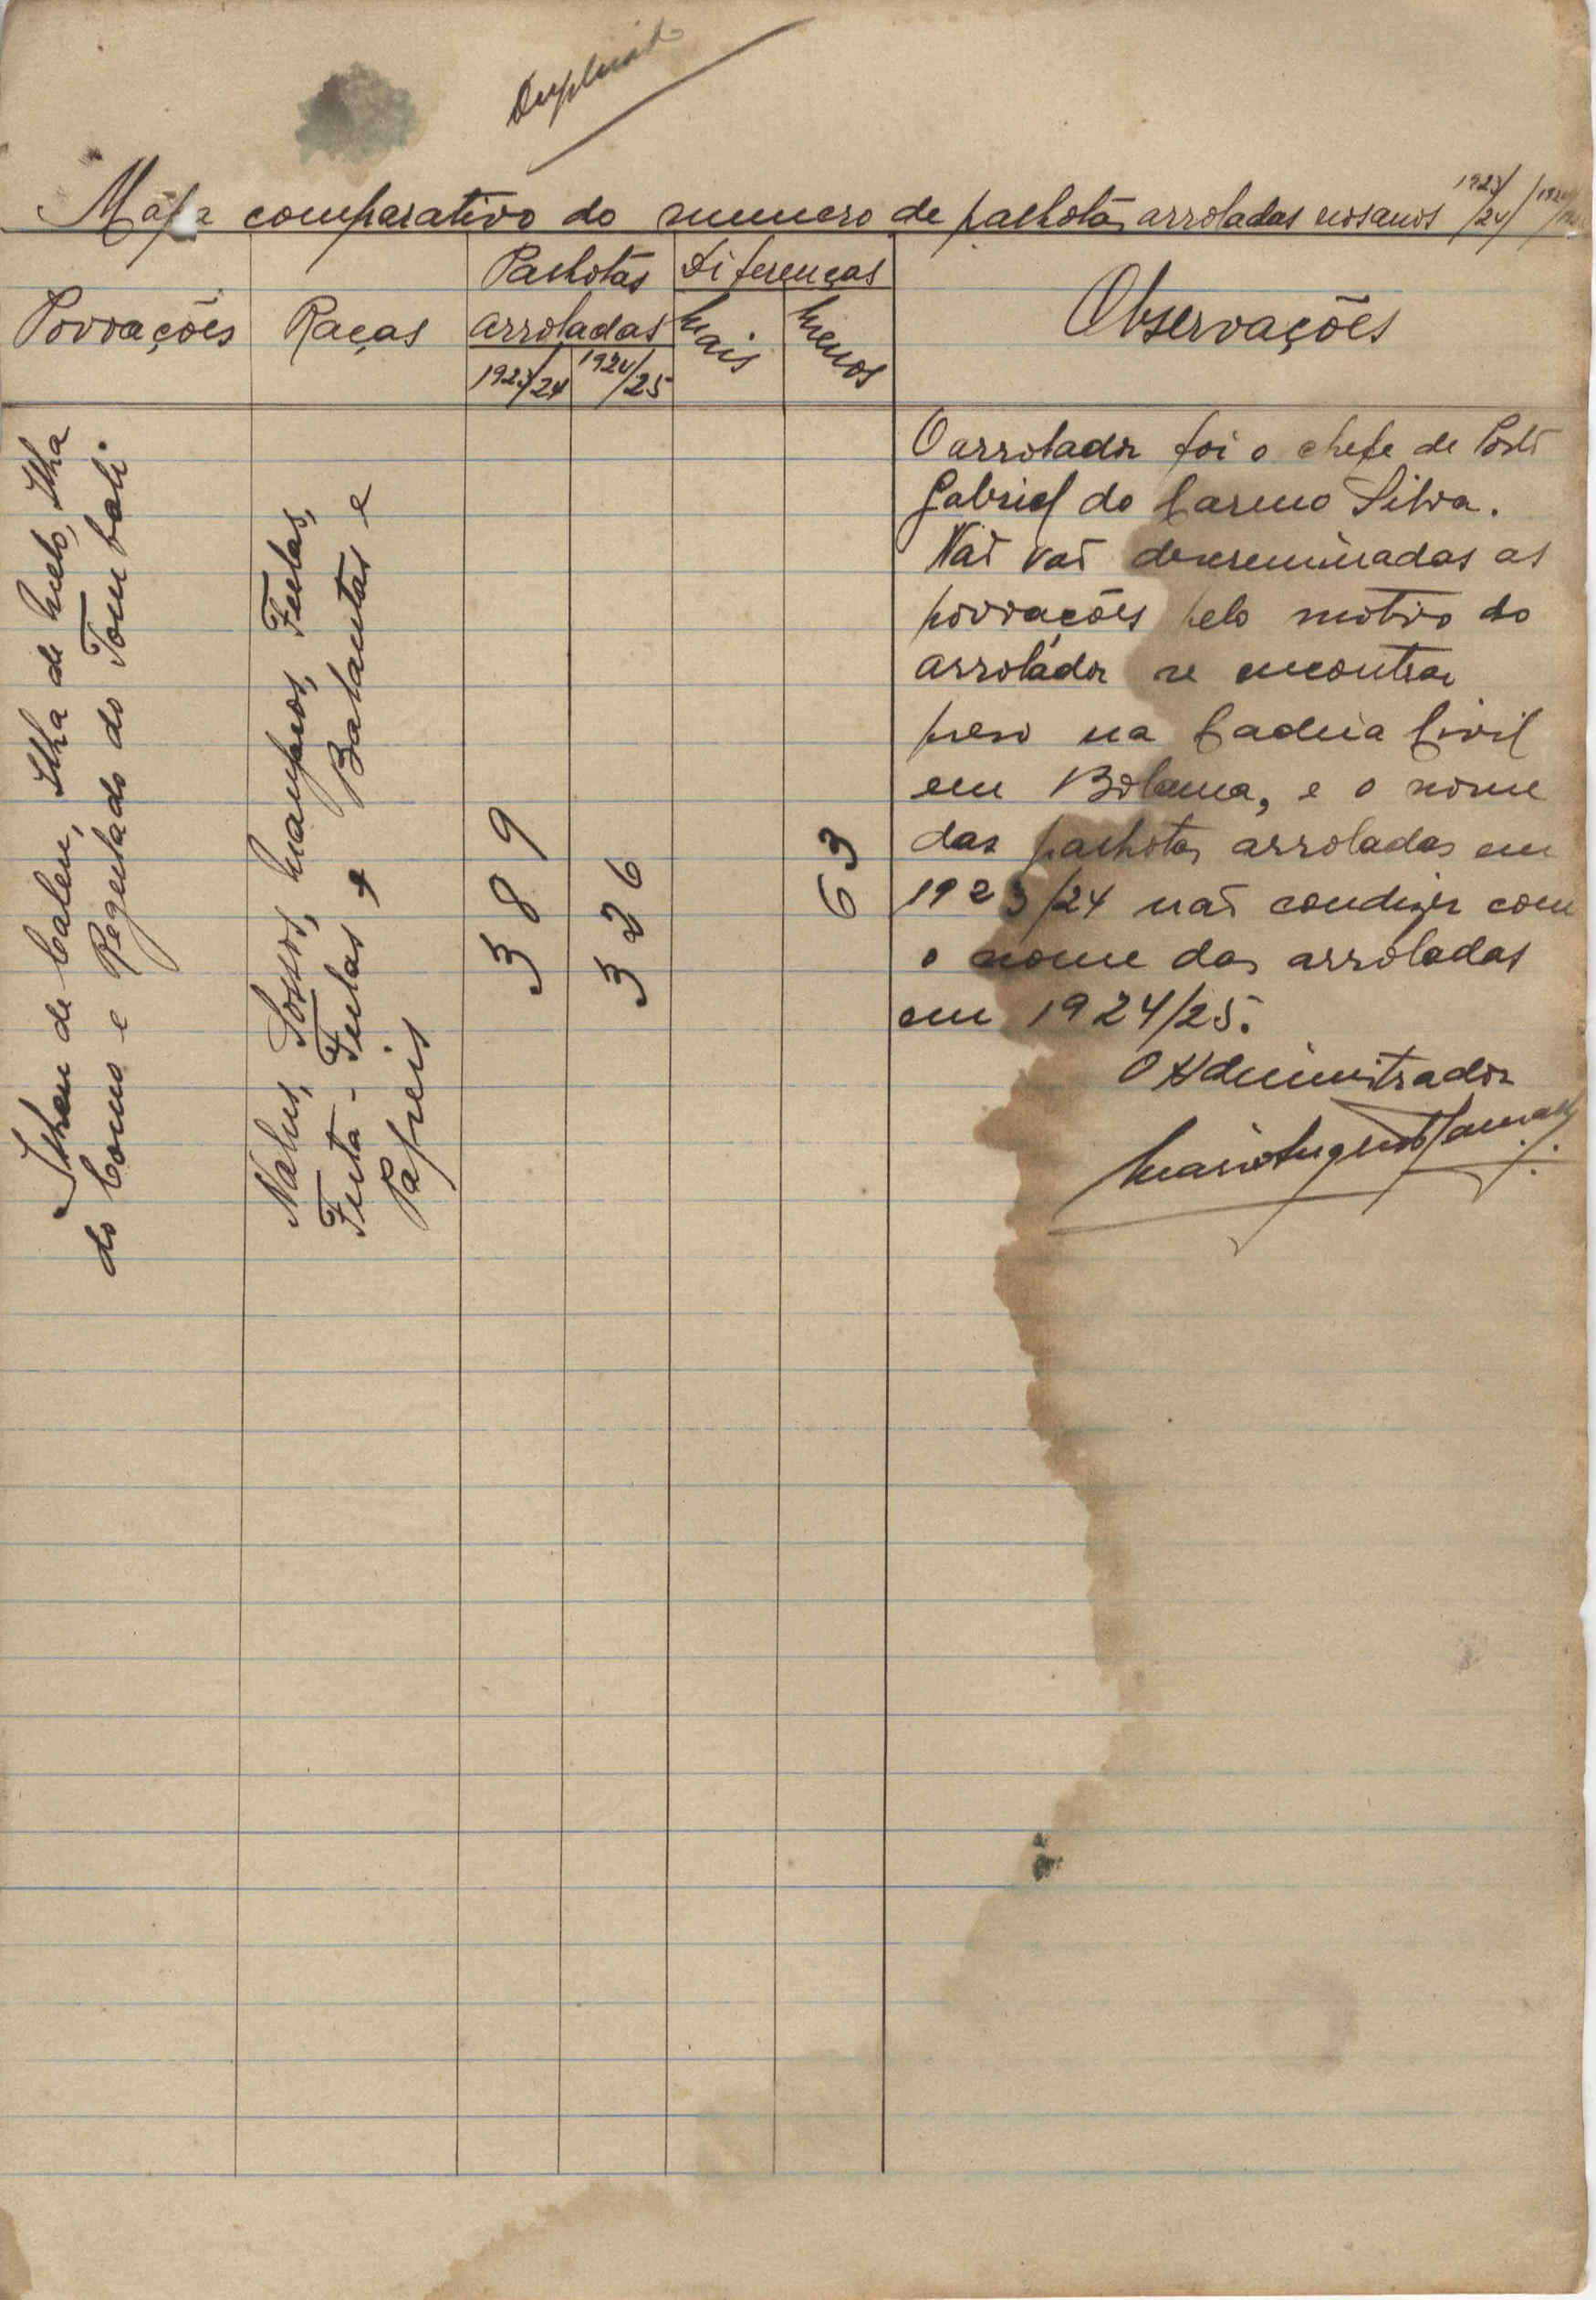 Duplicado
Mápa comparativo do numero de palhotas arroladas nos anos 1923/24
Povoações
Raças
Palhotas
arroladas
1923/24
1924/25
Diferenças
Mais
Menos
Observações
Ilheu de Calen, Ilha de Melo, Ilha
do Como e Regentado do Tombali.
Nalus, Sossos, Manfores, Fulas,
Futa-Fulas, Balantas e
Papeis
389
326
63
O arrolador foi o chefe de Posto
Gabriel do Carmo Silva.
Não vão descriminadas as
povoações pelo motivo do
arrolador se encontrar
preso na Cadeia Civil
em Bolama, e o nome
das palhotas arroladas em
1923/24 não condizer com
o nome das arroladas
em 1924/25.
O Administrador